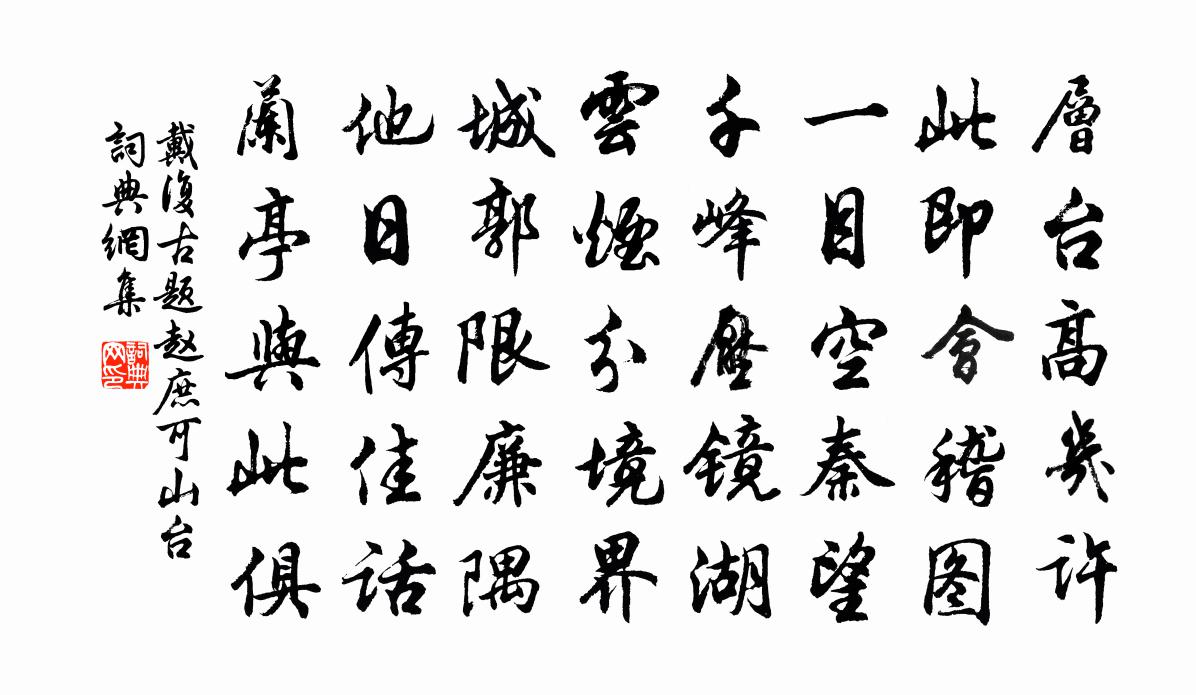 層台高幾许
此即會稽图
一目空秦望
千峰壓镜湖
雲煙分境界
城郭限廉隅
他日傳佳话
蘭亭與此俱
戴復古题赵庶可山台
詞典網集
詞典
网印